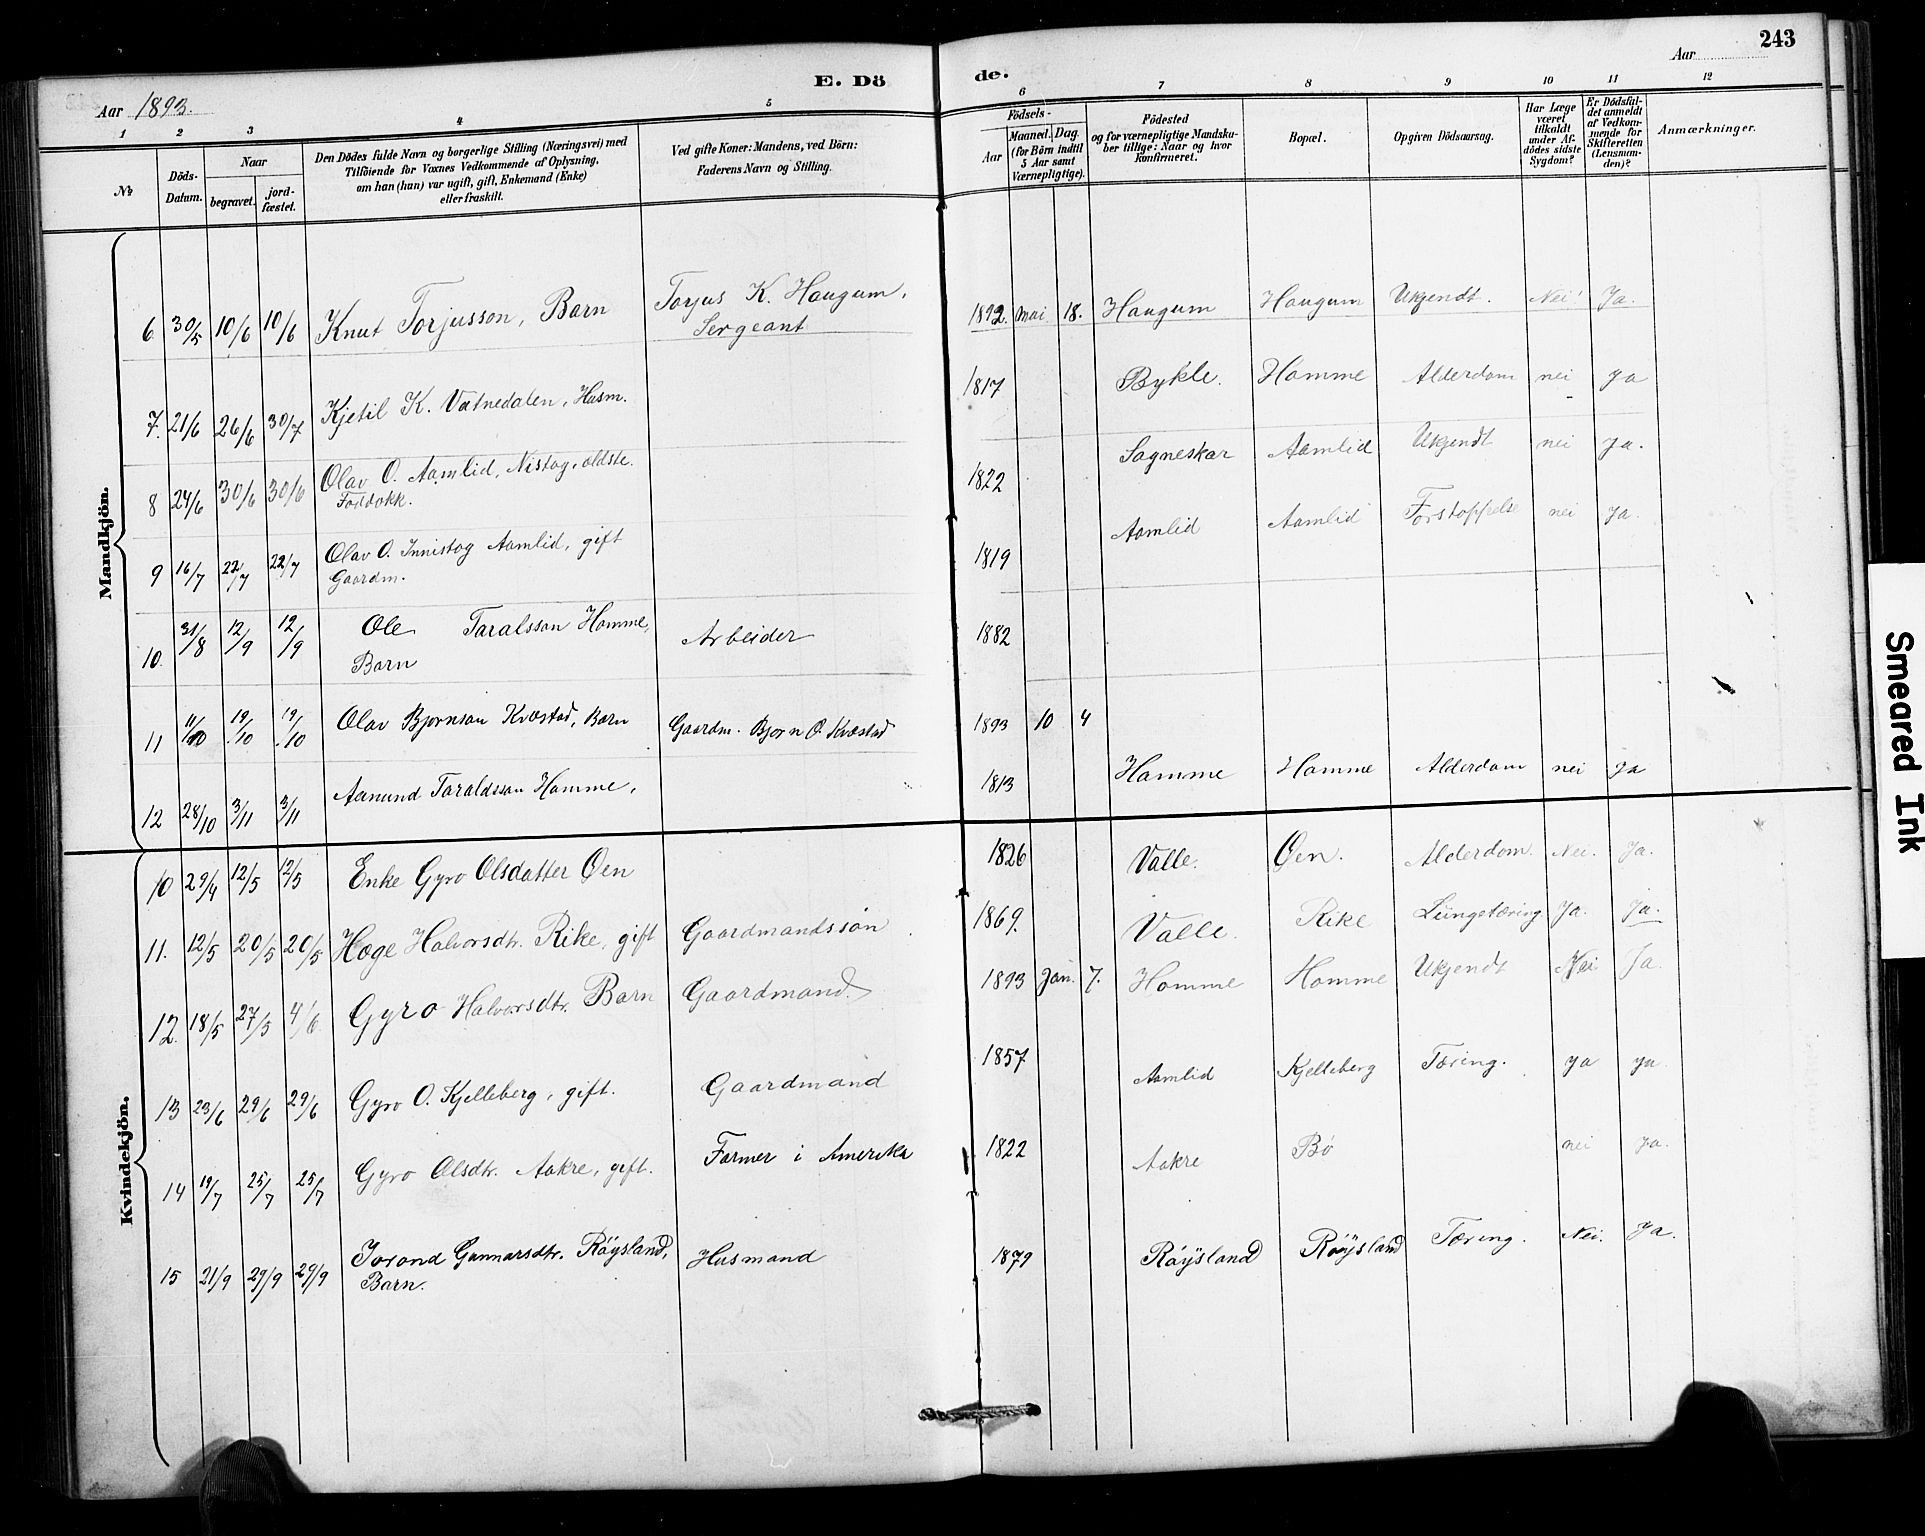 243
E. Dö de.
Aar 1893.
Aar
1 2 3 4 5 6 7 8 9 10 11 12
No
Döds-
Datum.
Naar
begravet.
jord-
fæstet.
Den Dödes fulde Navn og borgerlige Stilling (Næringsvei) med
Tilföiende for Voxnes Vedkommende af Oplysning,
om han (hun) var ugift, gift, Enkemand (Enke)
eller fraskilt.
Ved gifte Koner: Mandens, ved Börn:
Faderens Navn og Stilling.
Födsels-
Aar
Maaned. Dag.
(for Börn indtil
5 Aar samt
Værnepligtige).
Födested
og for værnepligtige Mandska-
ber tillige: Naar og hvor
konfirmeret.
Bopæl.
Opgiven Dödsaarsag.
Har Læge
været
tilkaldt
under Af-
dödes sidste
Sygdom?
Er Dödsfal-
det anmeldt
af Vedkom-
mende for
Skifteretten
(Lensman-
den)?
Anmærkninger.
Mandkjön.
6 30/5 10/6 10/6 Knut Torjusson, Barn Torjus K. Haugum, Sergeant 1892. mai 18. Haugum Haugum Ukjendt. Nei Ja.
7. 21/6 26/6 30/7 Kjetil K. Vatnedalen, Husm. 1817 Bykle. Homme Alderdom nei ja
8 24/6 30/6 30/6 Olav O. Aamlid, Nistog, oldste.
Foddokk. 1822 Sagneskar Aamlid Ukjendt nei ja.
9 16/7 22/7 22/7 Olav O. Innistog Aamlid, gift
Gaardm. 1819 Aamlid Aamlid Forstoppelse nei ja.
10. 31/8 12/9 12/9 Ole Taralsson Homme,
Barn Arbeider 1882
11 11/10 19/10 19/10 Olav Bjornson Kvæstad, Barn Gaardm. Bjorn O. Kvæstad 1893 10 4
12 28/10 3/11 3/11 Aanund Taraldsson Homme, 1813 Homme Homme Alderdom nei ja
Kvindekjön.
10 29/4 12/5 12/5 Enke Gyro Olsdatter Øen 1826 Valle. Øen. Alderdom. Nei. Ja.
11. 12/5 20/5 20/5 Hæge Halvorsdtr. Rike, gift Gaardmandssön 1869. Valle. Rike Lungetæring Ja. Ja.
12. 18/5 27/5 4/6 Gyro Halvorsdtr. Barn Gaardmand. 1893 Jan. 7. Homme Homme Ukjendt Nei Ja.
13 23/6 29/6 29/6 Gyro O. Kjelleberg, gift. Gaardmand 1857 Aamlid Kjelleberg Tæring. ja ja.
14 19/7 25/7 25/7 Gyro Olsdtr. Aakre, gift. Farmer i Amerika 1822 Aakre Bø nei ja.
15 21/9 29/9 29/9 Jorond Gunnarsdtr. Röysland,
Barn. Husmand 1879 Röysland Röysland Tæring. Nei. Ja.
Smeared Ink